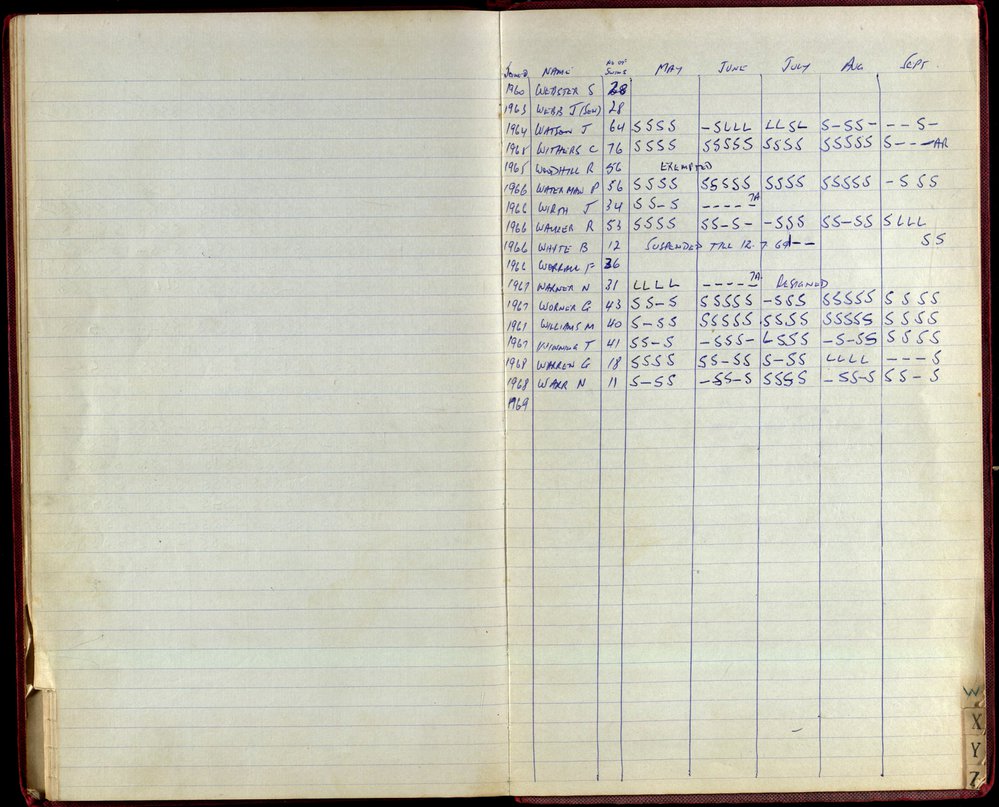 JOINED NAME NO OF SWIMS MAY JUNE JULY AUG SEPT
1960 WEBSTER S 28
1963 WEBB J (SEN) 28
1964 WATSON J 64 SSSS -SLLL LLSL S-SS- --S-
1965 WITHERS C 76 SSSS SSSSS SSSS SSSSS S---AR
1965 WOODHILL R 56 EXEMPTED
1966 WATERMAN P 56 SSSS SSSSS SSSS SSSSS -SSS
1966 WIRTH J 34 SS-S ----- 7A
1966 WALKER R 53 SSSS SS-S- -SSS SS-SS SLLL
1966 WHITE B 12 SUSPENDED TILL 12.7.69 -- SS
1966 WORRALL F 36
1967 WARNER N 31 LLLL ----- 7A RESIGNED
1967 WORNER G 43 SS-S SSSSS -SSS SSSSS SSSS
1967 WILLIAMS M 40 S-SS SSSSS SSSS SSSSS SSSS
1967 WINNING T 41 SS-S -SSS- LSSS -S-SS SSSS
1968 WARREN G 18 SSSS SS-SS S-SS LLLL ---S
1968 WARR N 11 S-SS -SS-S SSSS -SS-S SS-S
1969
W
X
Y
Z